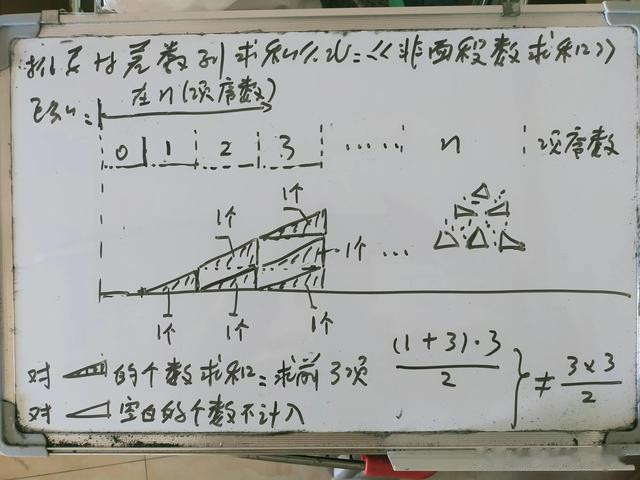 等差数列求和公式=《非面积数求和》
在n(项序数)
0 1 2 3 ...... n 项序数
1个
1个
1个 ...
1个 1个 1个
对 的个数求和=求前3项 (1+3)·3/2
对 空白的个数不计入 } ≠ 3×3/2